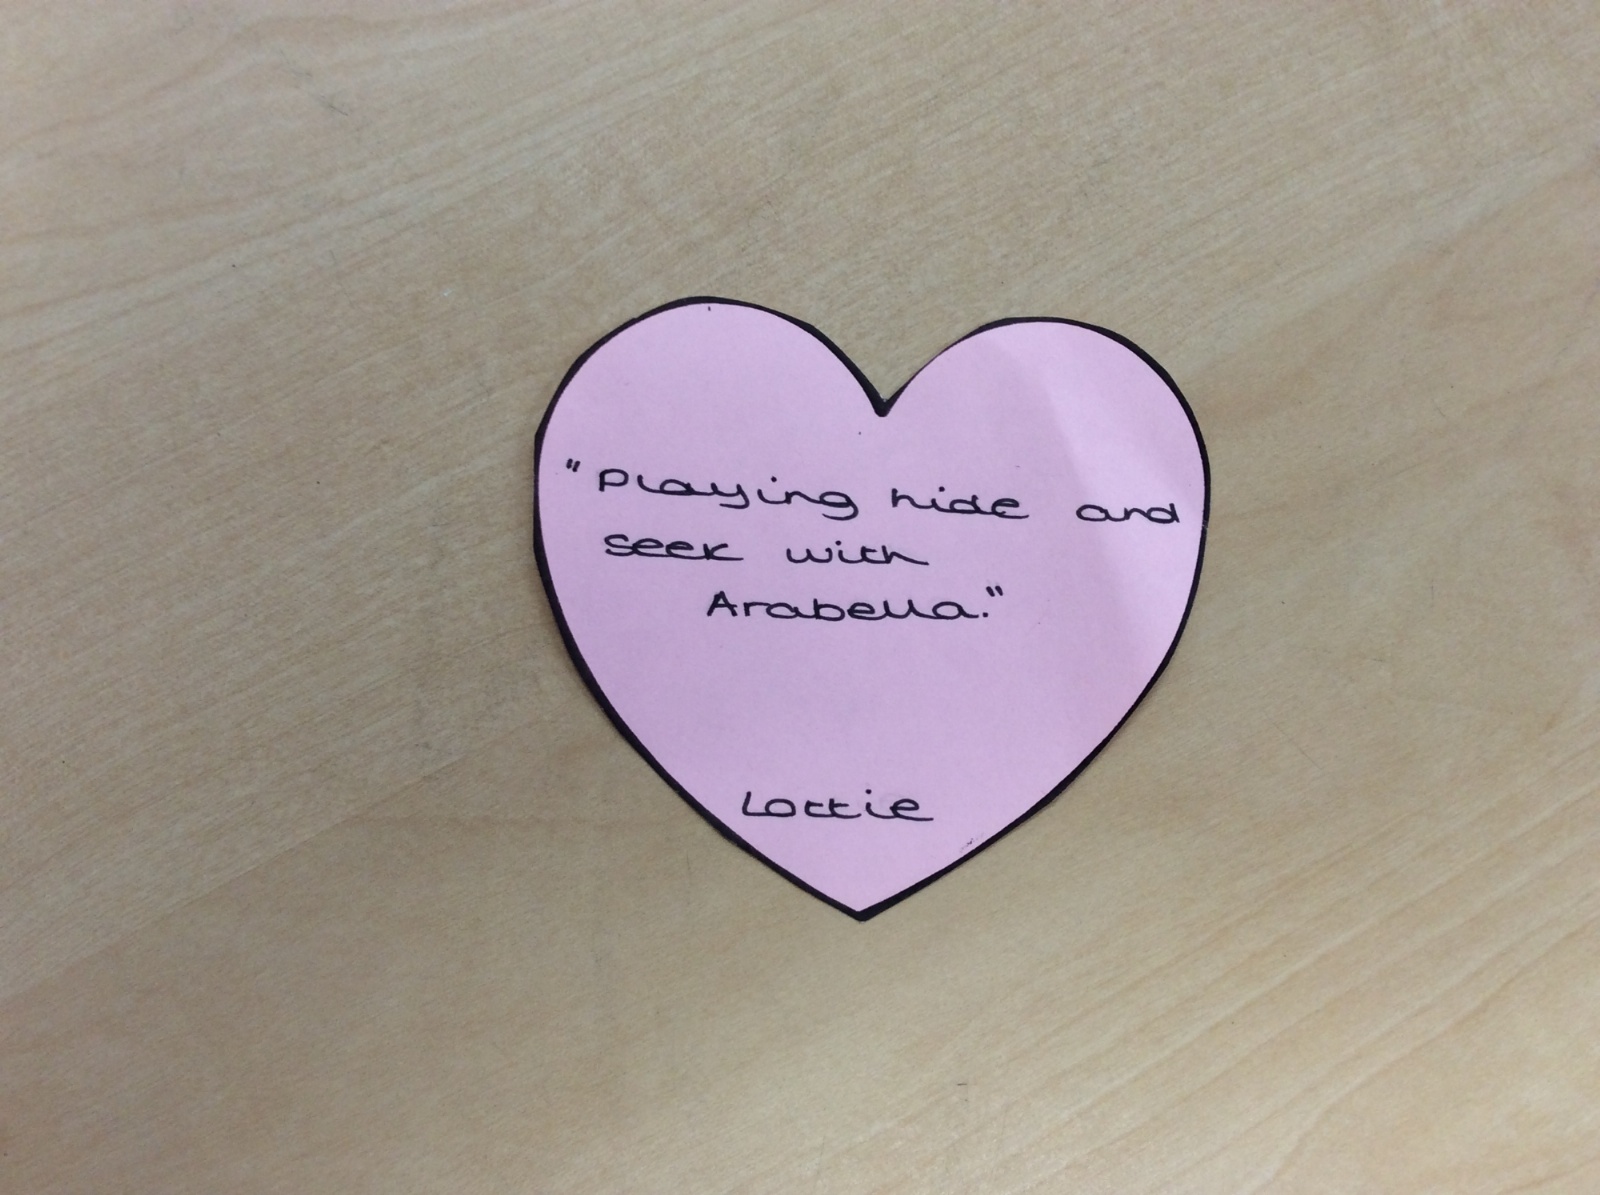 "Playing hide and
seek with
Arabella."
Lottie